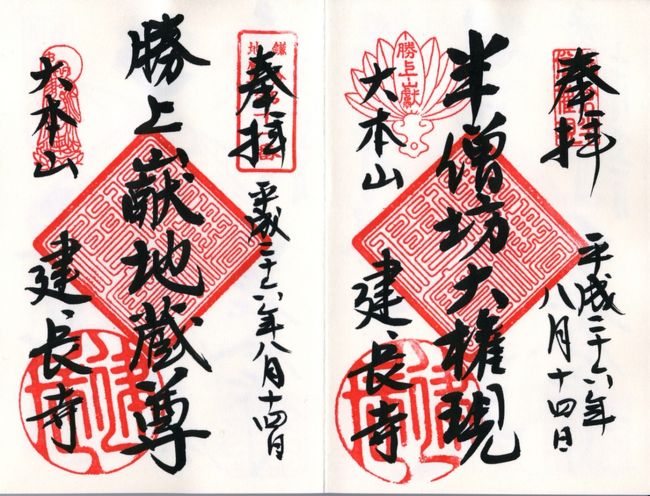 奉拝
平成二十六年
八月十四日
半僧坊大権現
勝上巘
大本山
建長寺
奉拝
平成二十六年八月十四日
勝上巘地蔵尊
大本山
建長寺